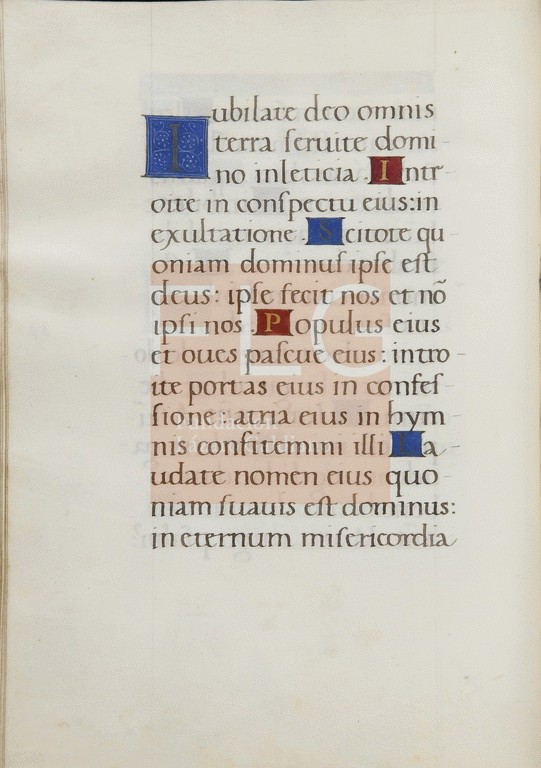 Iubilate deo omnis
terra ſeruite domi-
no inleticia. Intr-
oite in conſpectu eius: in
exultatione. Scitote qu-
oniam dominuſ ipſe eſt
deus: ipſe fecit nos et nō
ipſi nos. Populus eius
et oues paſcue eius: intro-
ite portas eius in confeſ-
ſione: atria eius in hym
nis confitemini illi La-
udate nomen eius quo
niam ſuauis eſt dominus:
in eternum miſericordia
FLG
Fundación